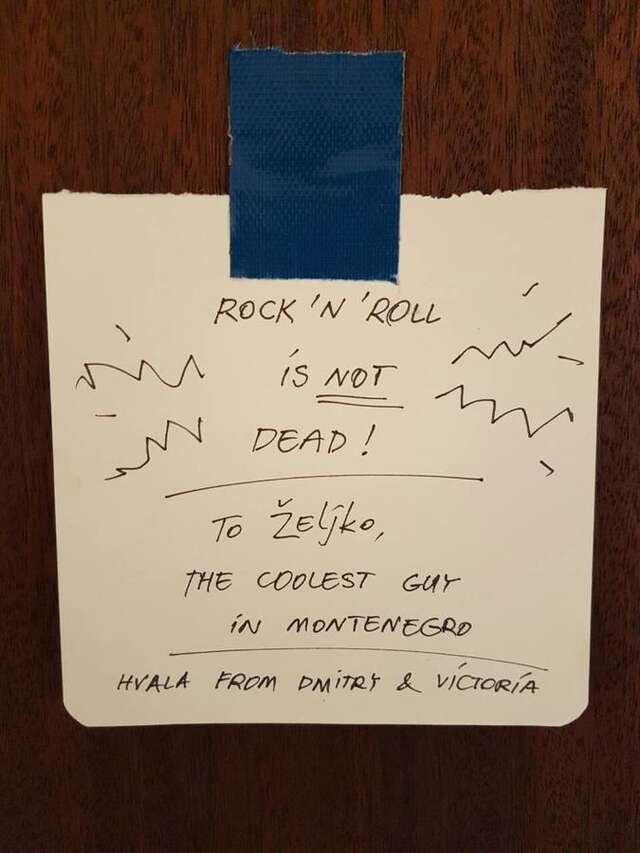 ROCK 'N 'ROLL
is NOT
DEAD!
To Željko,
THE COOLEST GUY
iN MONTENEGRO
HVALA FROM DMITRY & VICTORIA